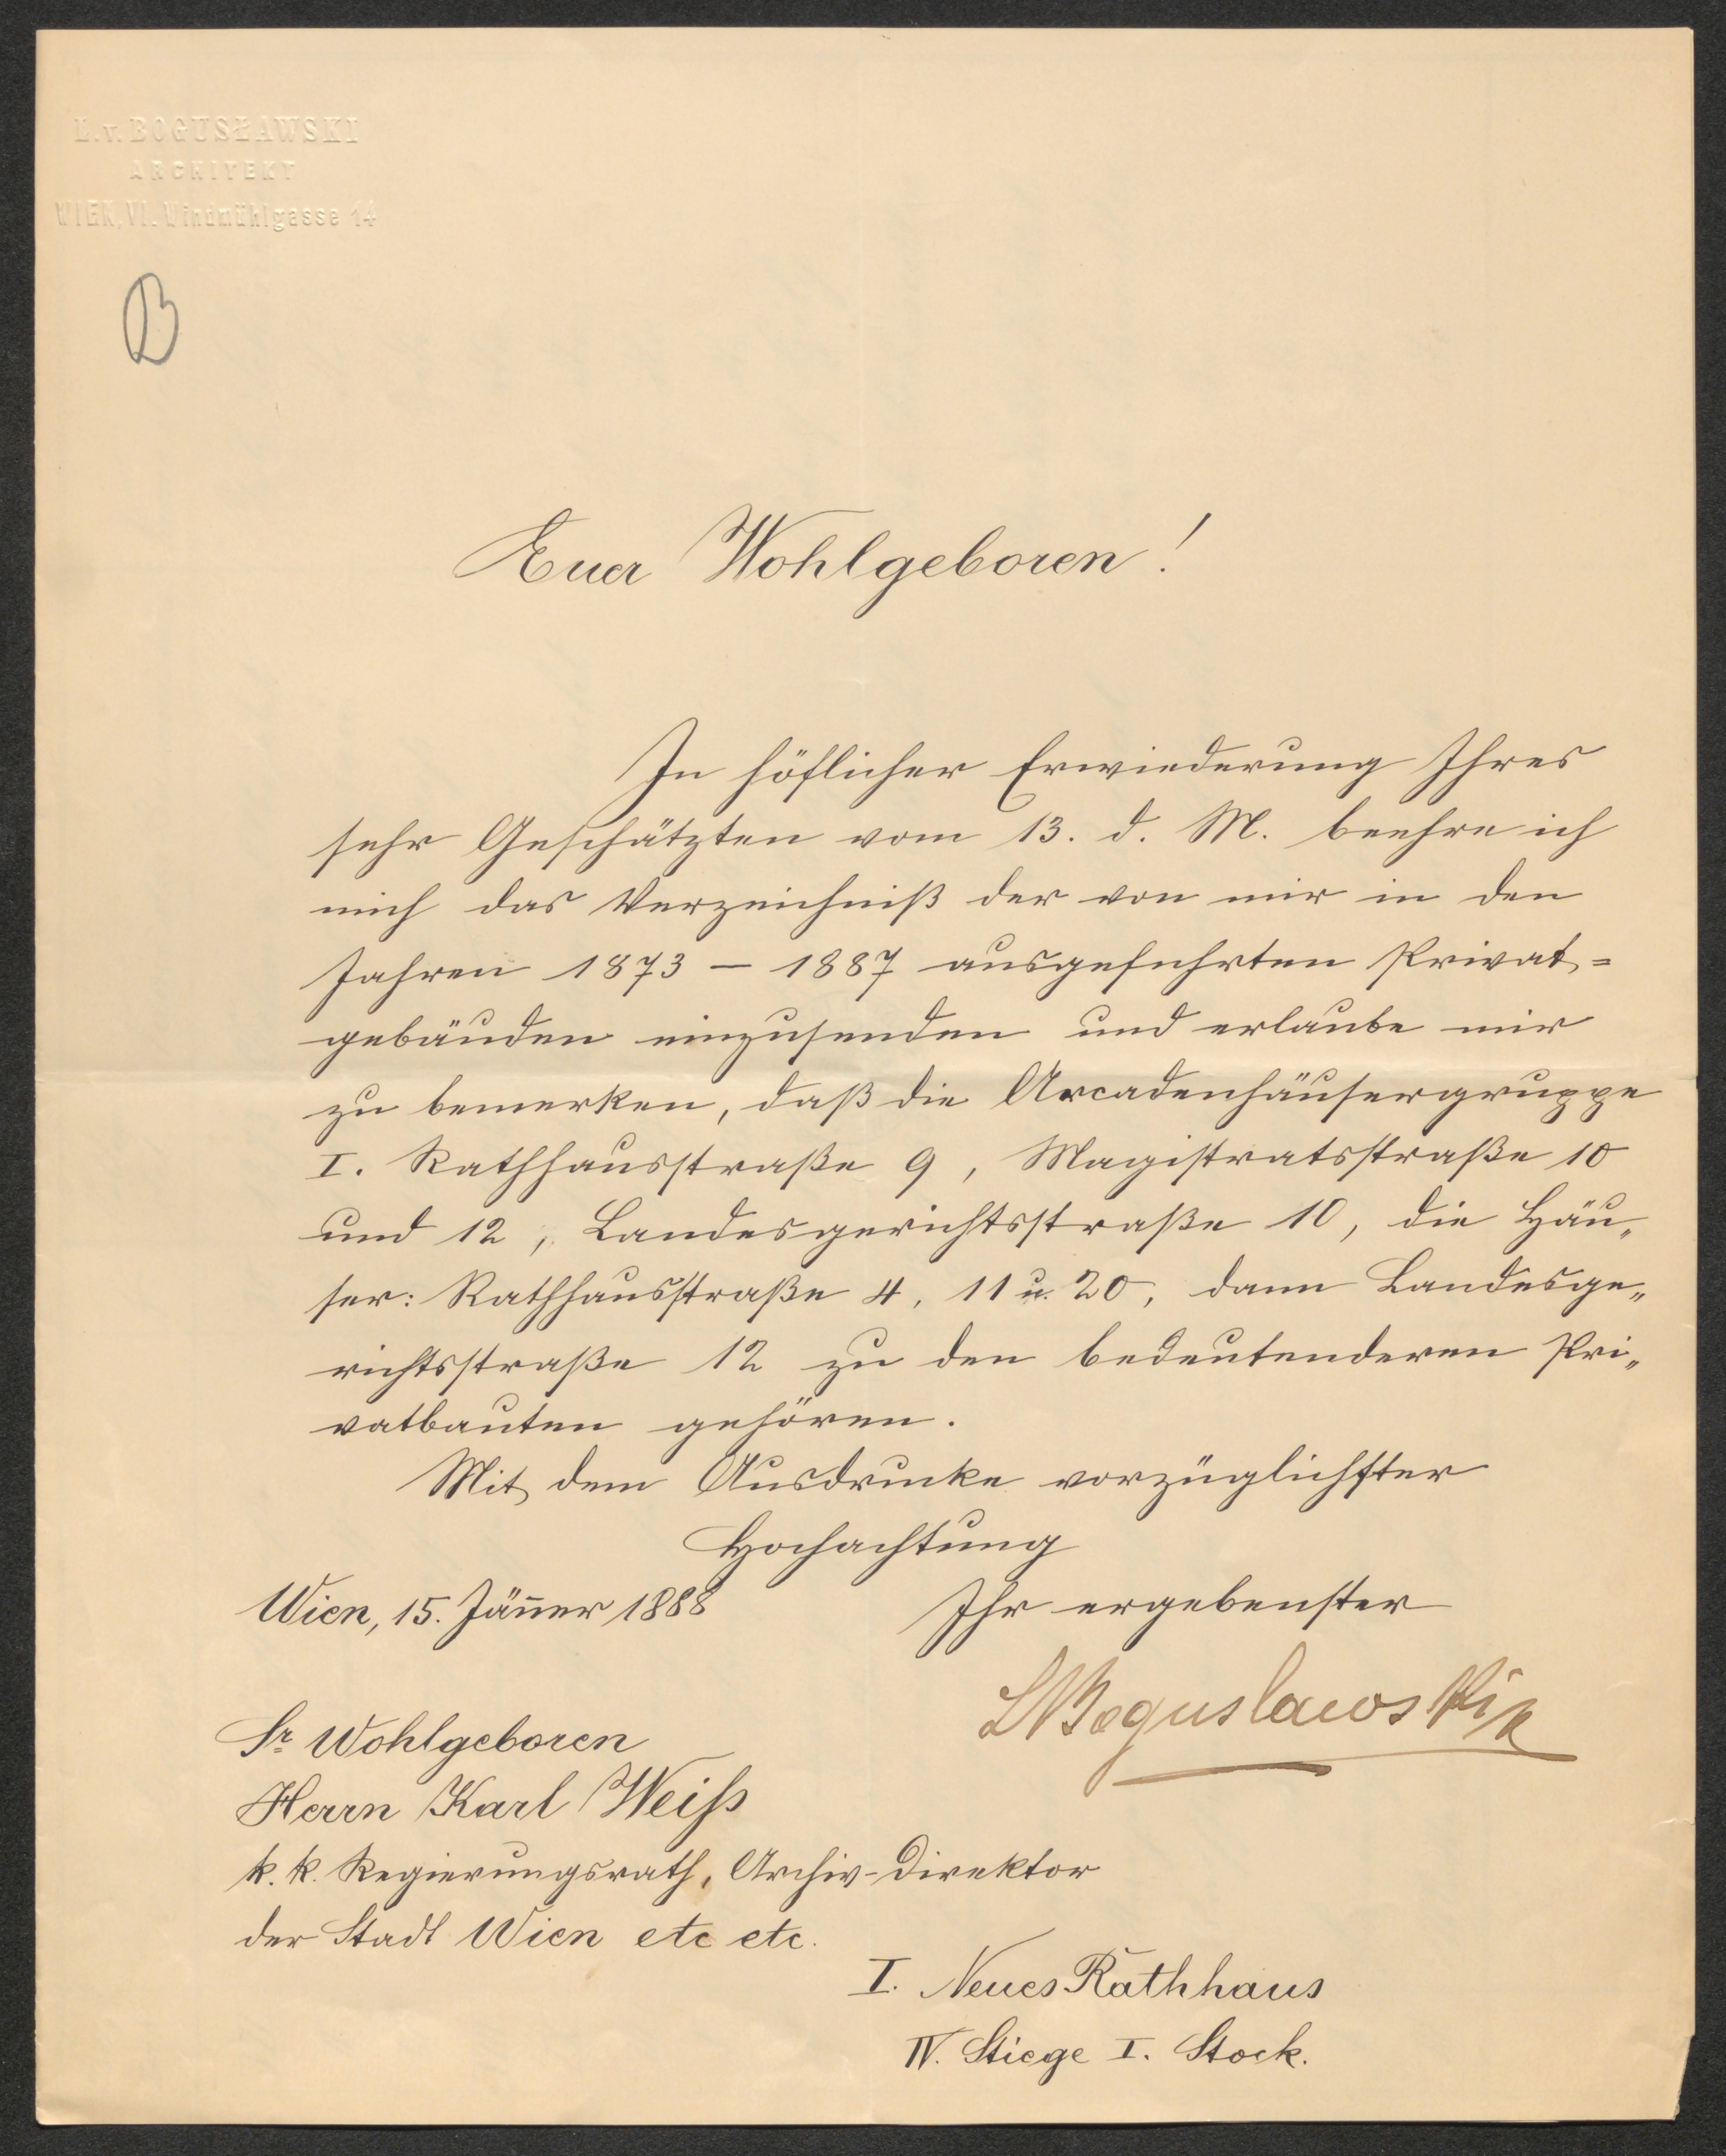 L. v. BOGUSŁAWSKI
ARCHITEKT
WIEN, VI. Windmühlgasse 14
B
Euer Wohlgeboren!
In höflicher Erwiederung Ihres
sehr Geschätzten vom 13. d. M. beehre ich
mich das Verzeichniß der von mir in den
Jahren 1873 – 1887 ausgeführten Privat=
gebäuden einzusenden und erlaube mir
zu bemerken, daß die Arcadenhäusergruppe
I. Rathhausstraße 9, Magistratsstraße 10
und 12, Landesgerichtsstraße 10, die Häu„
ser: Rathhausstraße 4, 11 u. 20, dann Landesge„
richtsstraße 12 zu den bedeutenderen Pri„
vatbauten gehören.
Mit dem Ausdrucke vorzüglichster
Hochachtung
Wien, 15. Jänner 1888
Ihr ergebenster
LvBoguslawski
Sr. Wohlgeboren
Herrn Karl Weiß
k. k. Regierungsrath, Archiv-Direktor
der Stadt Wien etc etc.
I. Neues Rathhaus
IV. Stiege I. Stock.